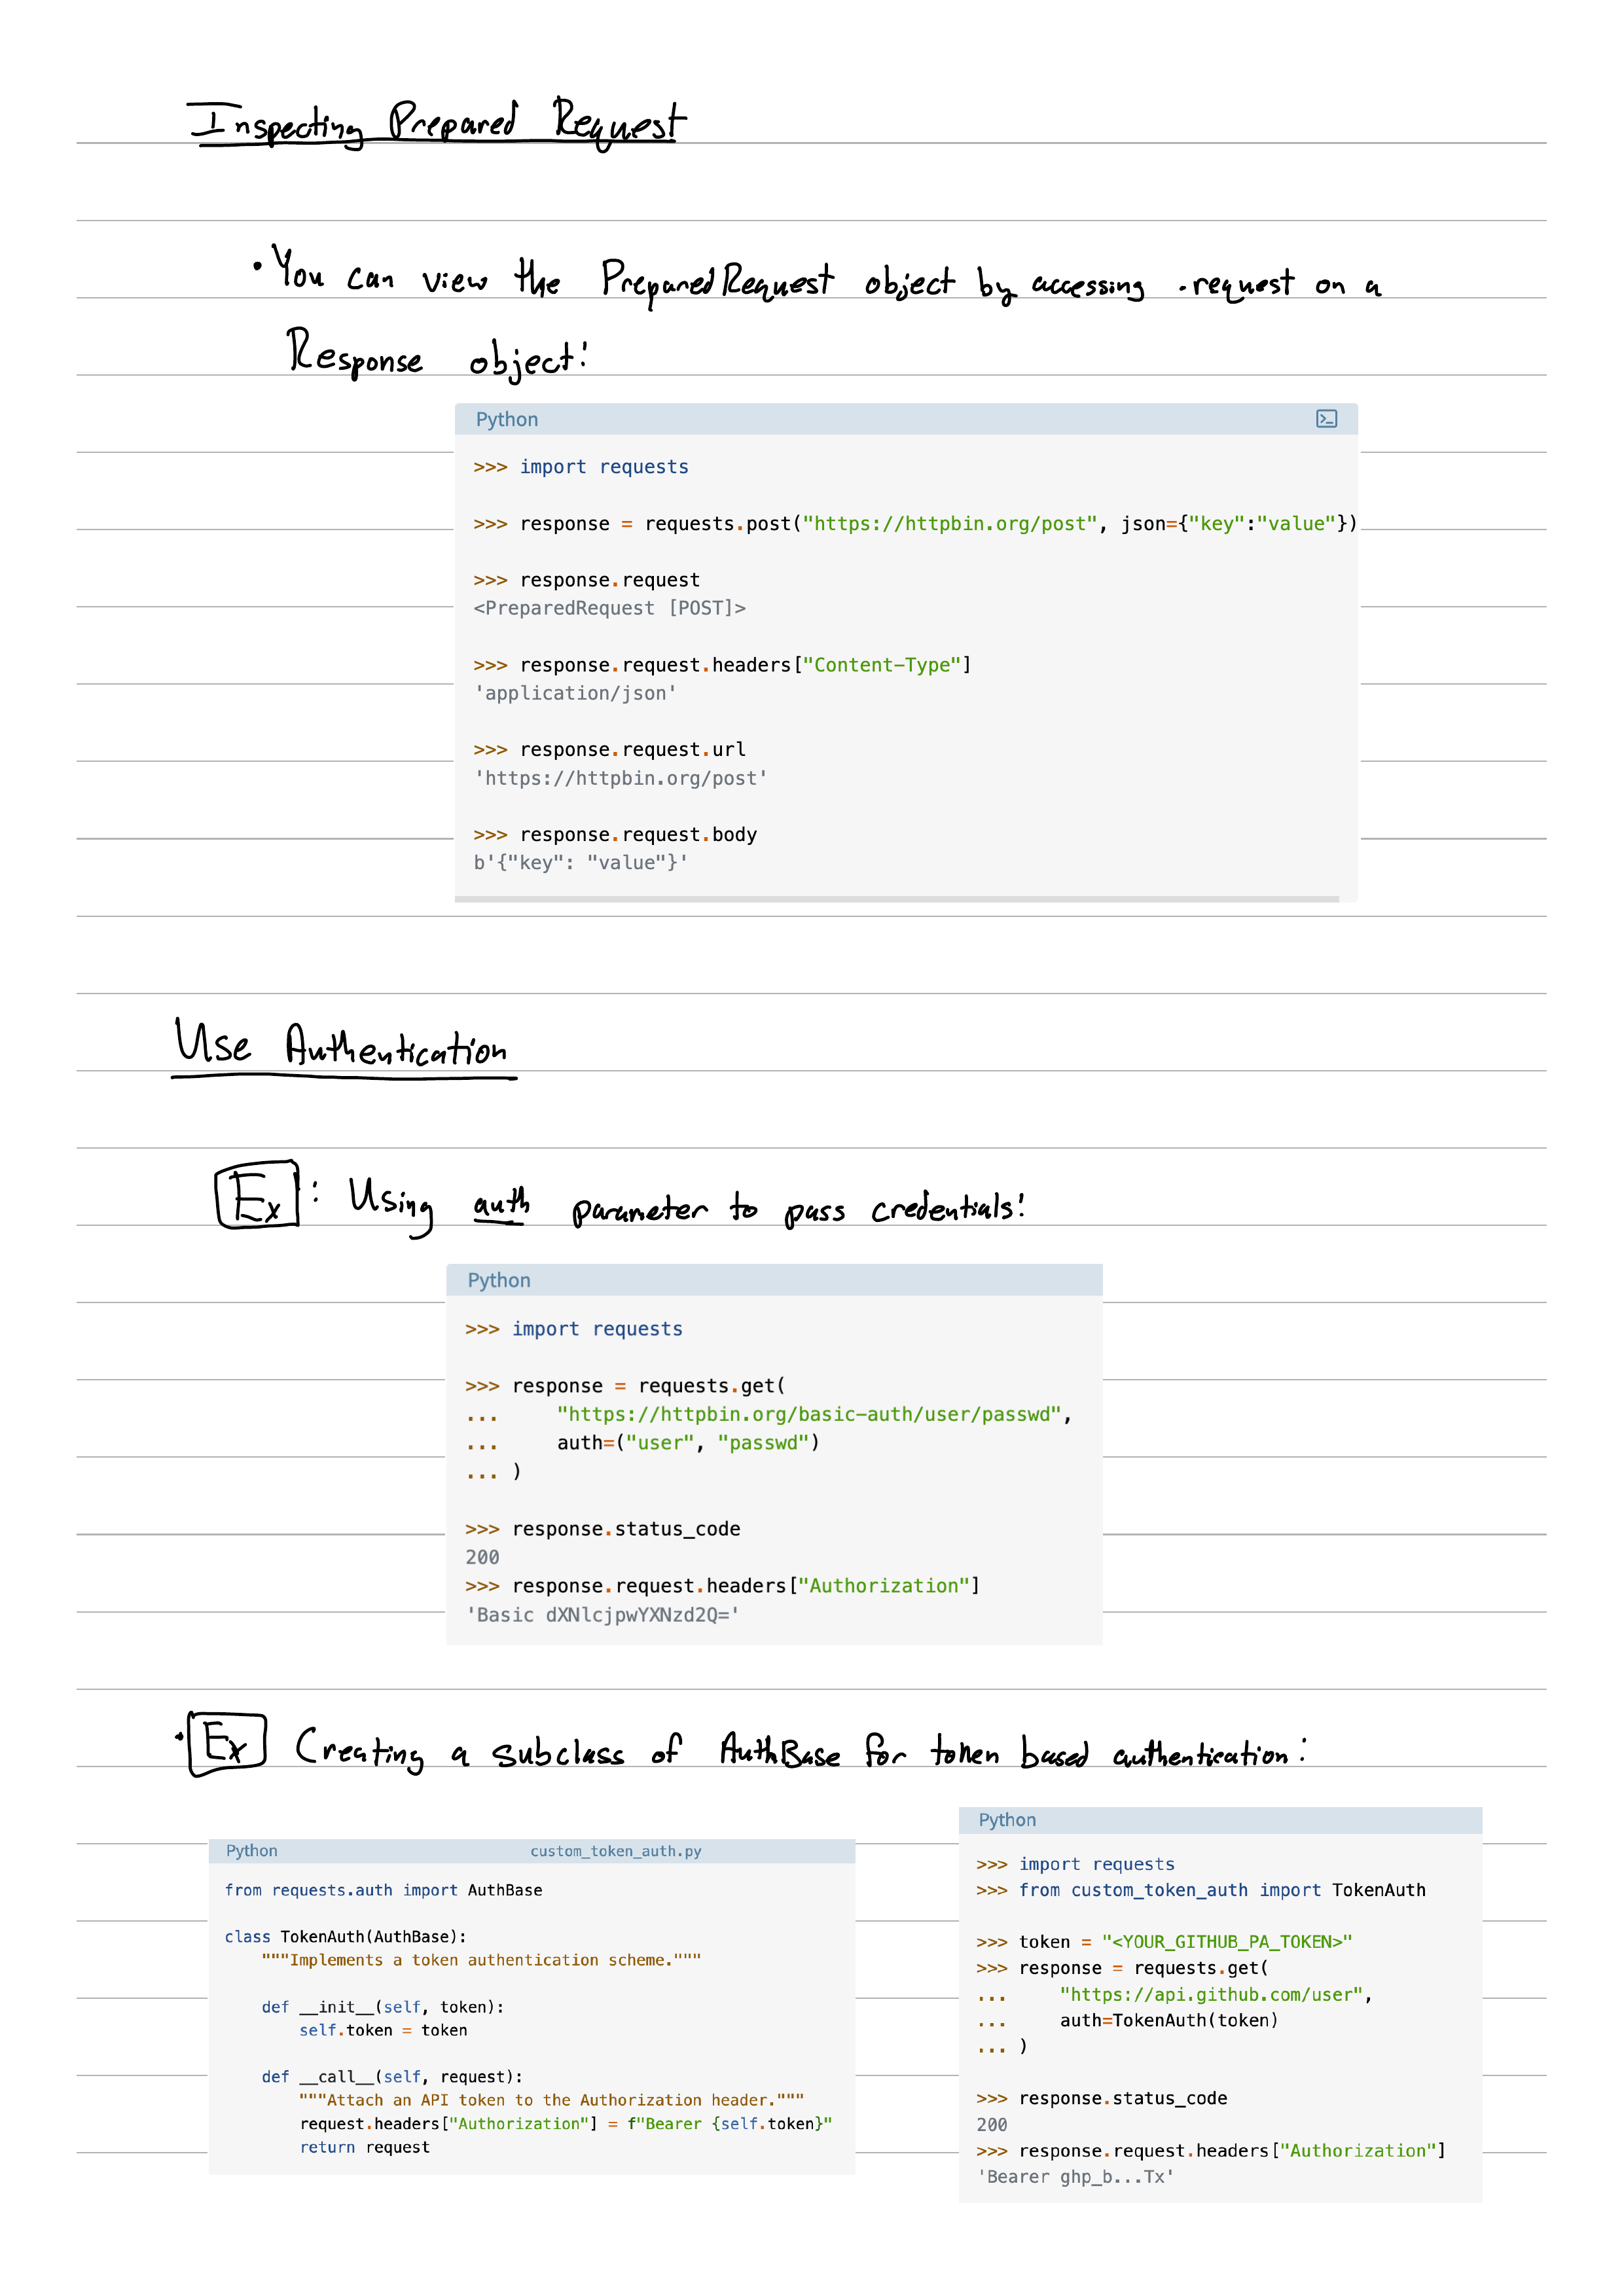 Inspecting Prepared Request
• You can view the PreparedRequest object by accessing .request on a
Response object:
Python
>>> import requests
>>> response = requests.post("https://httpbin.org/post", json={"key":"value"})
>>> response.request
<PreparedRequest [POST]>
>>> response.request.headers["Content-Type"]
'application/json'
>>> response.request.url
'https://httpbin.org/post'
>>> response.request.body
b'{"key": "value"}'
Use Authentication
Ex: Using auth parameter to pass credentials:
Python
>>> import requests
>>> response = requests.get(
...     "https://httpbin.org/basic-auth/user/passwd",
...     auth=("user", "passwd")
... )
>>> response.status_code
200
>>> response.request.headers["Authorization"]
'Basic dXNlcjpwYXNzd2Q='
• Ex Creating a subclass of AuthBase for token based authentication:
Python custom_token_auth.py
from requests.auth import AuthBase
class TokenAuth(AuthBase):
    """Implements a token authentication scheme."""
    def __init__(self, token):
        self.token = token
    def __call__(self, request):
        """Attach an API token to the Authorization header."""
        request.headers["Authorization"] = f"Bearer {self.token}"
        return request
Python
>>> import requests
>>> from custom_token_auth import TokenAuth
>>> token = "<YOUR_GITHUB_PA_TOKEN>"
>>> response = requests.get(
...     "https://api.github.com/user",
...     auth=TokenAuth(token)
... )
>>> response.status_code
200
>>> response.request.headers["Authorization"]
'Bearer ghp_b...Tx'